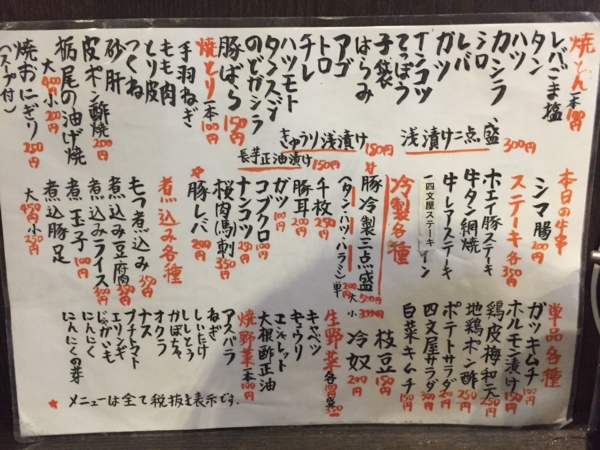 焼とん 一本100円
レバごま塩
タン
ハツ
カシラ
シロ
レバ
ガツ
ナンコツ
てっぽう
子袋
はらみ
アゴ
トロ
チレ
ハツモト
タンスジ
のどガシラ
豚ばら 150円
焼とり 一本100円
手羽ねぎ
もも肉
とり皮
つくね
砂肝
皮ポン酢焼 200円
栃尾の油げ焼
大400円 小200円
焼おにぎり 250円
(スープ付)
浅漬け二点盛 300円
きゅうり浅漬け 150円
長芋正油漬け 150円
本日の牛串
シマ腸 200円
ステーキ 各350円
ホエイ豚ステーキ
牛タン網焼
牛レアステーキ
四文屋ステーキ
冷製各種
豚冷製三点盛 大500円 小
(タン・ハツ・ハラミ)単
千枚
豚耳 200円
ガツ 100円
コブクロ 100円
ナンコツ 250円
桜肉(馬刺) 350円
豚レバ 200円
煮込み各種
もつ煮込み 350円
煮込み豆腐 350円
煮込みライス 300円
玉子 100円
煮込豚足
大450円 小250円
単品各種
ガツキムチ 100円
ホルモン漬け 150円
鶏皮梅和え 250円
地鶏ポン酢 250円
ポテトサラダ 200円
四文屋サラダ 200円
白菜キムチ 150円
枝豆 150円
冷奴 200円
生野菜
キャベツ
キュウリ
エシャレット
大根酢正油
焼野菜 一本100円
アスパラ
ねぎ
しいたけ
ししとう
かぼちゃ
オクラ
ナス
プチトマト
エリンギ
じゃがいも
にんにく
にんにくの芽
★ メニューは全て税抜き表示です.